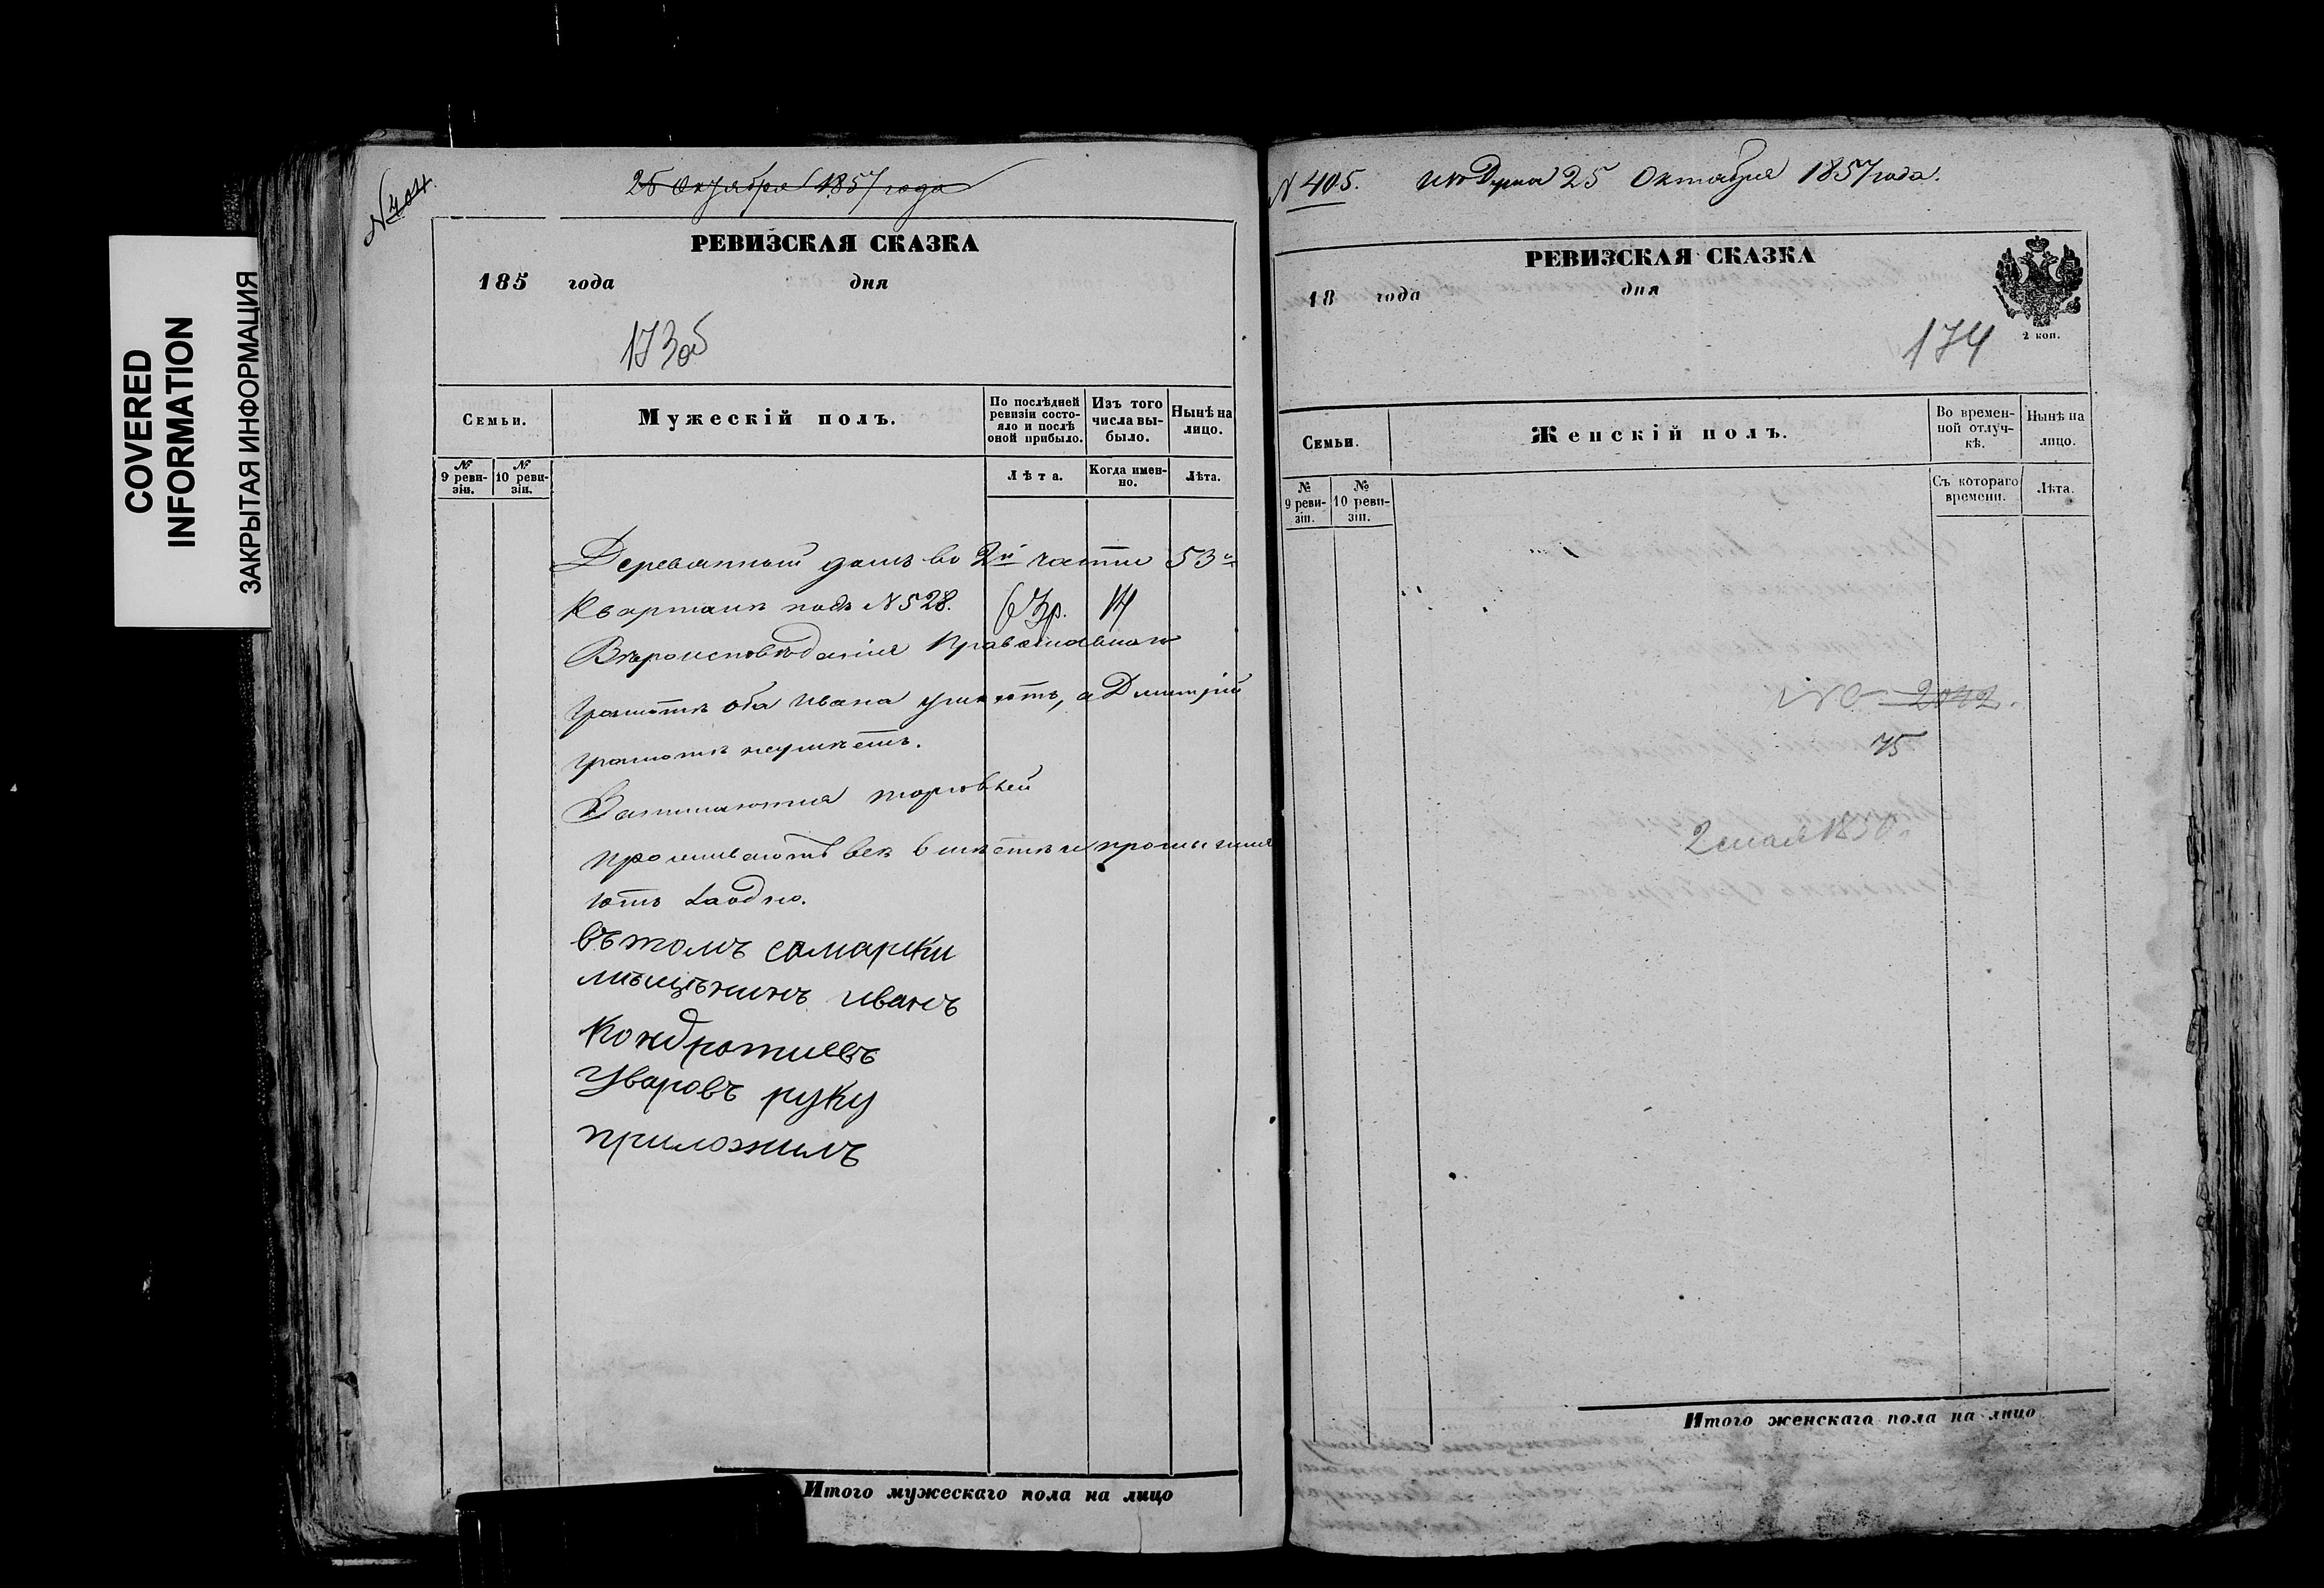 COVERED
INFORMATION
ЗАКРЫТАЯ ИНФОРМАЦИЯ
N 404.
25 Октября 1857 года
РЕВИЗСКАЯ СКАЗКА
185 года дня
173об
Семьи.
Мужескій полъ.
По послѣдней ревизіи состояло и послѣ оной прибыло.
Изъ того числа выбыло.
Нынѣ на лицо.
№ 9 ревизіи.
№ 10 ревизіи.
Лѣта.
Когда именно.
Лѣта.
Деревянный домъ во 2й части 53
Кварталѣ подъ N 528.
Вѣроисповѣданія Православнаго
грамотѣ оба Ивана умѣютъ, а Дмитрій
грамотѣ неумѣетъ.
Занимаются торговлей
проживаютъ всѣ вмѣстѣ и промышля
ютъ заодно.
въ томъ самарски
мѣщѣнинъ иванъ
Кондротиевъ
Уваровъ руку
приложилъ
Итого мужескаго пола на лицо
N 405. 25 Октября 1857 года.
РЕВИЗСКАЯ СКАЗКА
18 года дня
2 коп.
174
Семьи.
Женскій полъ.
Во временной отлучкѣ.
Нынѣ на лицо.
№ 9 ревизіи.
№ 10 ревизіи.
Съ котораго времени.
Лѣта.
75
Итого женскаго пола на лицо